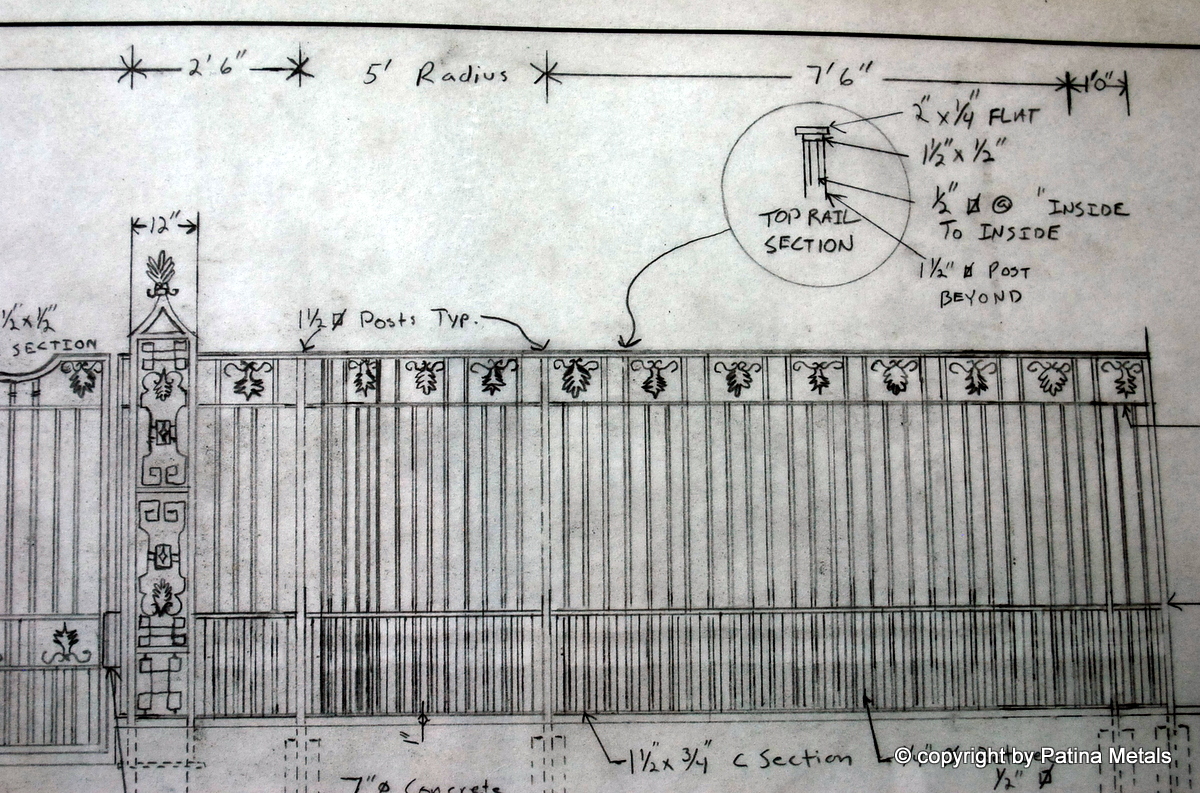 2'6"
5' Radius
7'6"
1'0"
2" x 1/4" FLAT
1 1/2" x 1/2"
1/2" ⌀ @ " INSIDE
TO INSIDE
1 1/2" ⌀ POST
BEYOND
TOP RAIL
SECTION
12"
1/2" x 1/2"
SECTION
1 1/2 ⌀ Posts Typ.
1 1/2" x 3/4" C Section
7" ⌀ Concrete
1/2" ⌀
© copyright by Patina Metals